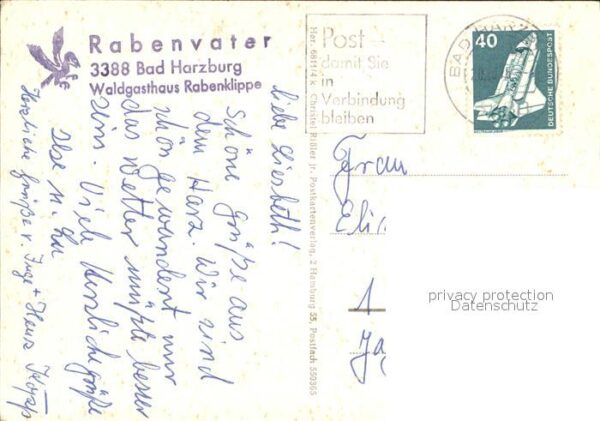 Rabenvater
3388 Bad Harzburg
Waldgasthaus Rabenklippe
liebe Liesbeth!
Schöne Grüße aus
dem Harz. Wir sind
schön gewandert nur
das Wetter müßte besser
sein. Viele herzliche Grüße
Ilse u.
Herzliche Grüße v. Inge + Heinz
Her. 6811/4 k Christel Rißler jr. Postkartenverlag, 2 Hamburg 55, Postfach 550365
Post -
damit Sie
in
Verbindung
bleiben
BAD HARZ
40
DEUTSCHE BUNDESPOST
Frau
Elis
1
privacy protection
Datenschutz